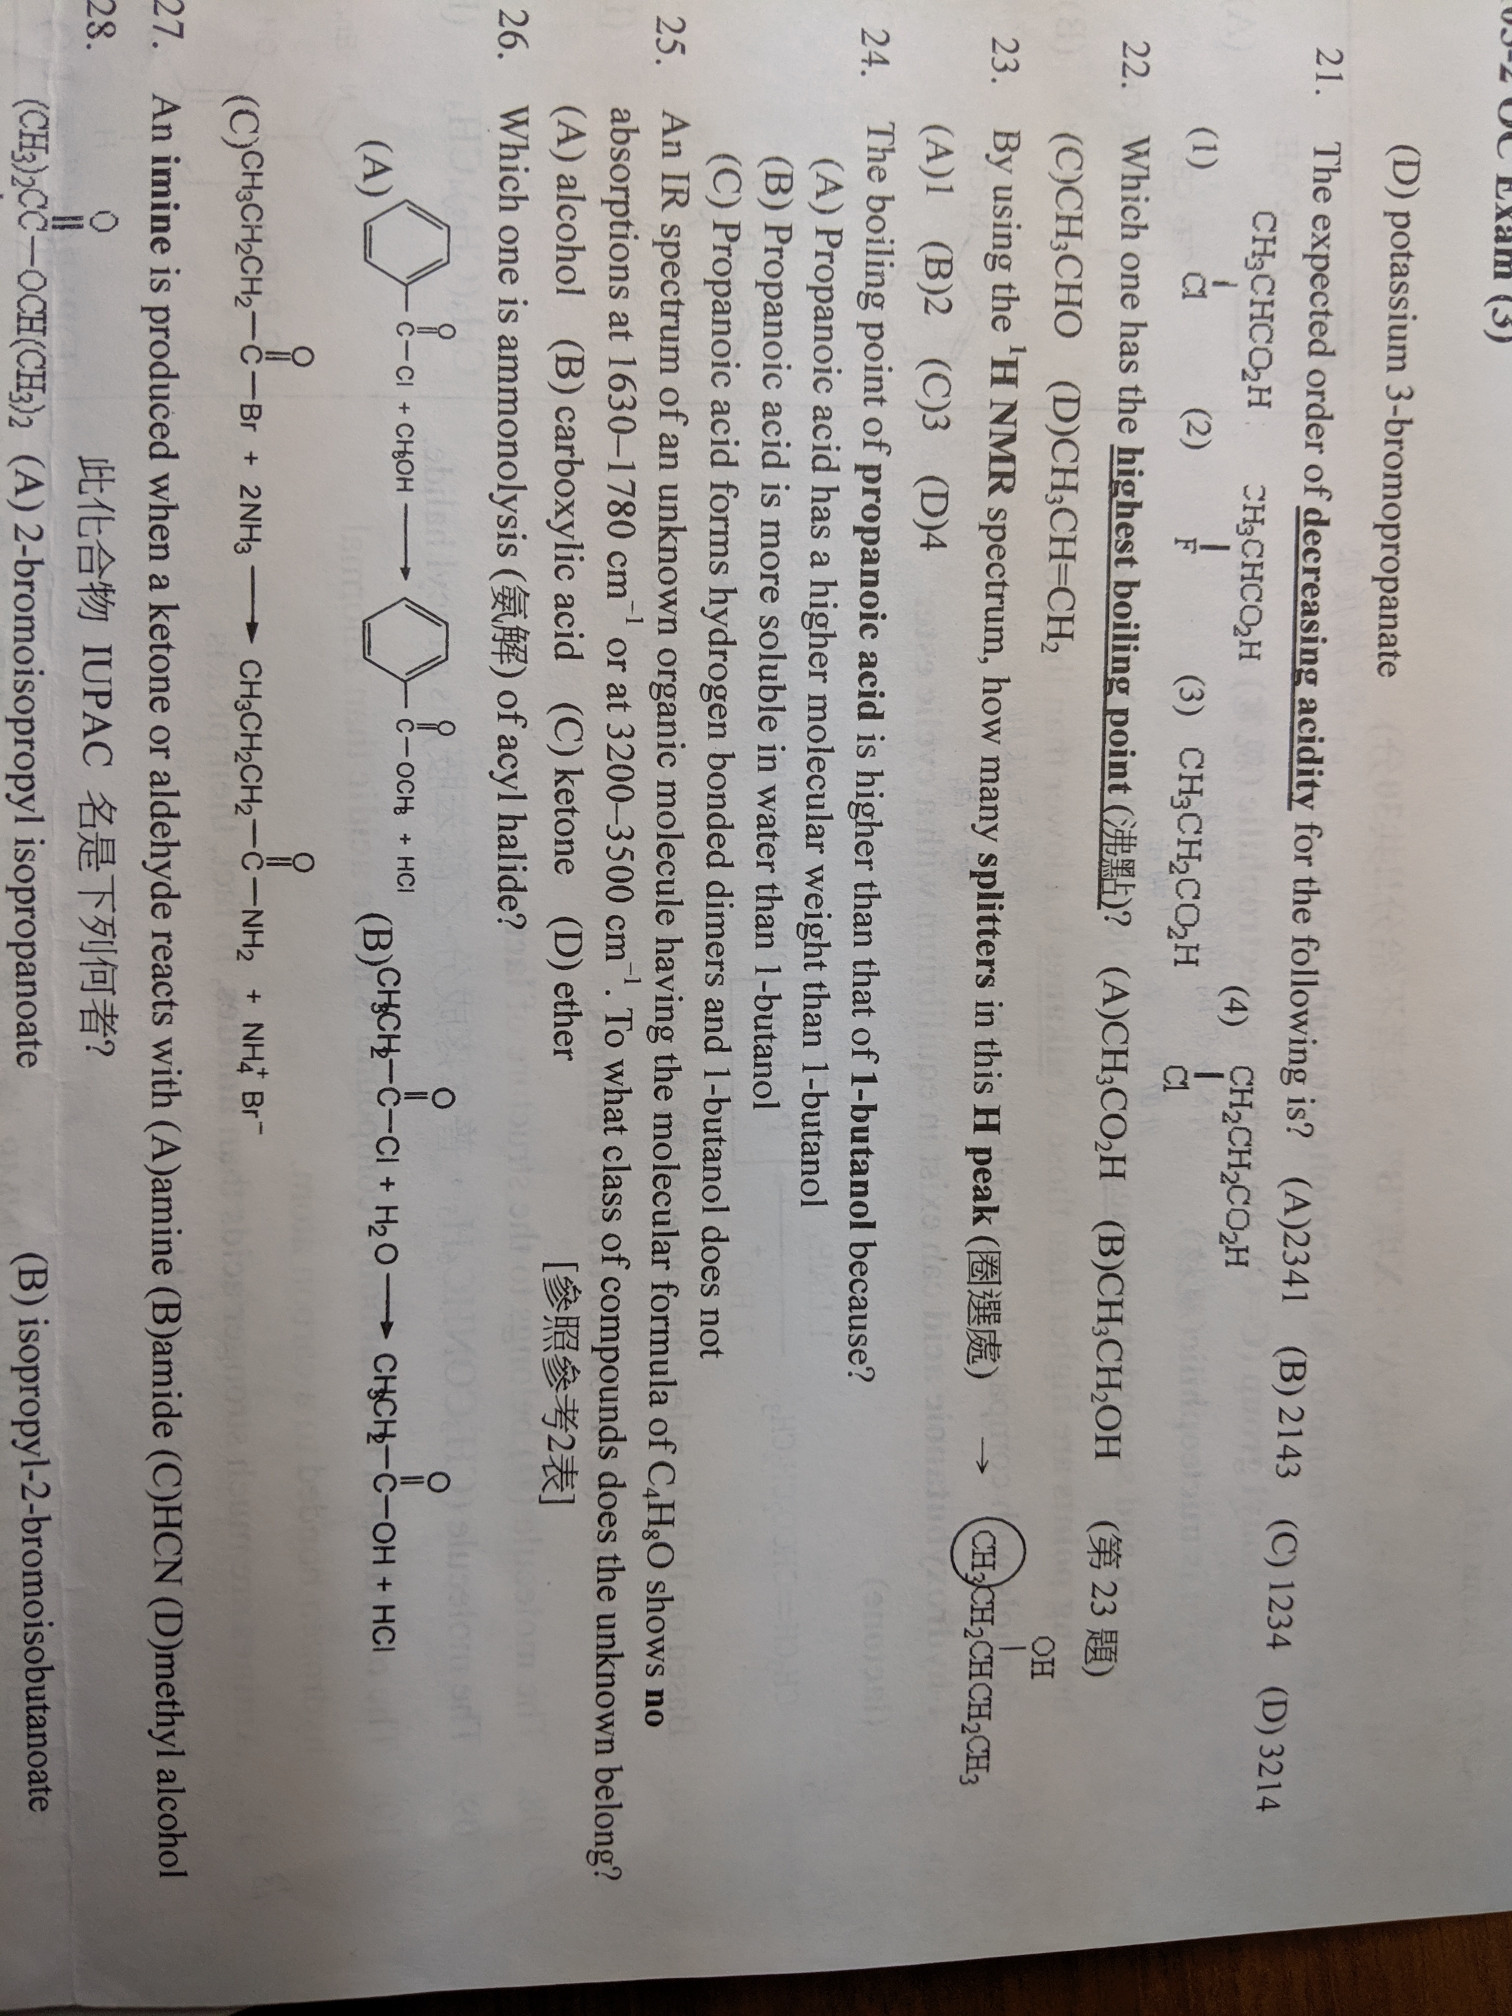 Exam (3)
(D) potassium 3-bromopropanate
21. The expected order of decreasing acidity for the following is? (A)2341 (B) 2143 (C) 1234 (D) 3214
(1) CH3CHCO2H (2) CH3CHCO2H (3) CH3CH2CO2H (4) CH2CH2CO2H
Cl F Cl
22. Which one has the highest boiling point (沸點)? (A)CH3CO2H (B)CH3CH2OH (第 23 題)
(C)CH3CHO (D)CH3CH=CH2
OH
23. By using the ¹H NMR spectrum, how many splitters in this H peak (圈選處) → CH3CH2CHCH2CH3
(A)1 (B)2 (C)3 (D)4
24. The boiling point of propanoic acid is higher than that of 1-butanol because?
(A) Propanoic acid has a higher molecular weight than 1-butanol
(B) Propanoic acid is more soluble in water than 1-butanol
(C) Propanoic acid forms hydrogen bonded dimers and 1-butanol does not
25. An IR spectrum of an unknown organic molecule having the molecular formula of C4H8O shows no
absorptions at 1630–1780 cm⁻¹ or at 3200–3500 cm⁻¹. To what class of compounds does the unknown belong?
(A) alcohol (B) carboxylic acid (C) ketone (D) ether [參照參考2表]
26. Which one is ammonolysis (氨解) of acyl halide?
O O O O
(A) C–Cl + CH3OH → C–OCH3 + HCl (B)CH3CH2–C–Cl + H2O → CH3CH2–C–OH + HCl
O O
(C)CH3CH2CH2–C–Br + 2NH3 → CH3CH2CH2–C–NH2 + NH4⁺ Br⁻
27. An imine is produced when a ketone or aldehyde reacts with (A)amine (B)amide (C)HCN (D)methyl alcohol
28. O 此化合物 IUPAC 名是下列何者?
(CH3)2CC–OCH(CH3)2 (A) 2-bromoisopropyl isopropanoate (B) isopropyl-2-bromoisobutanoate